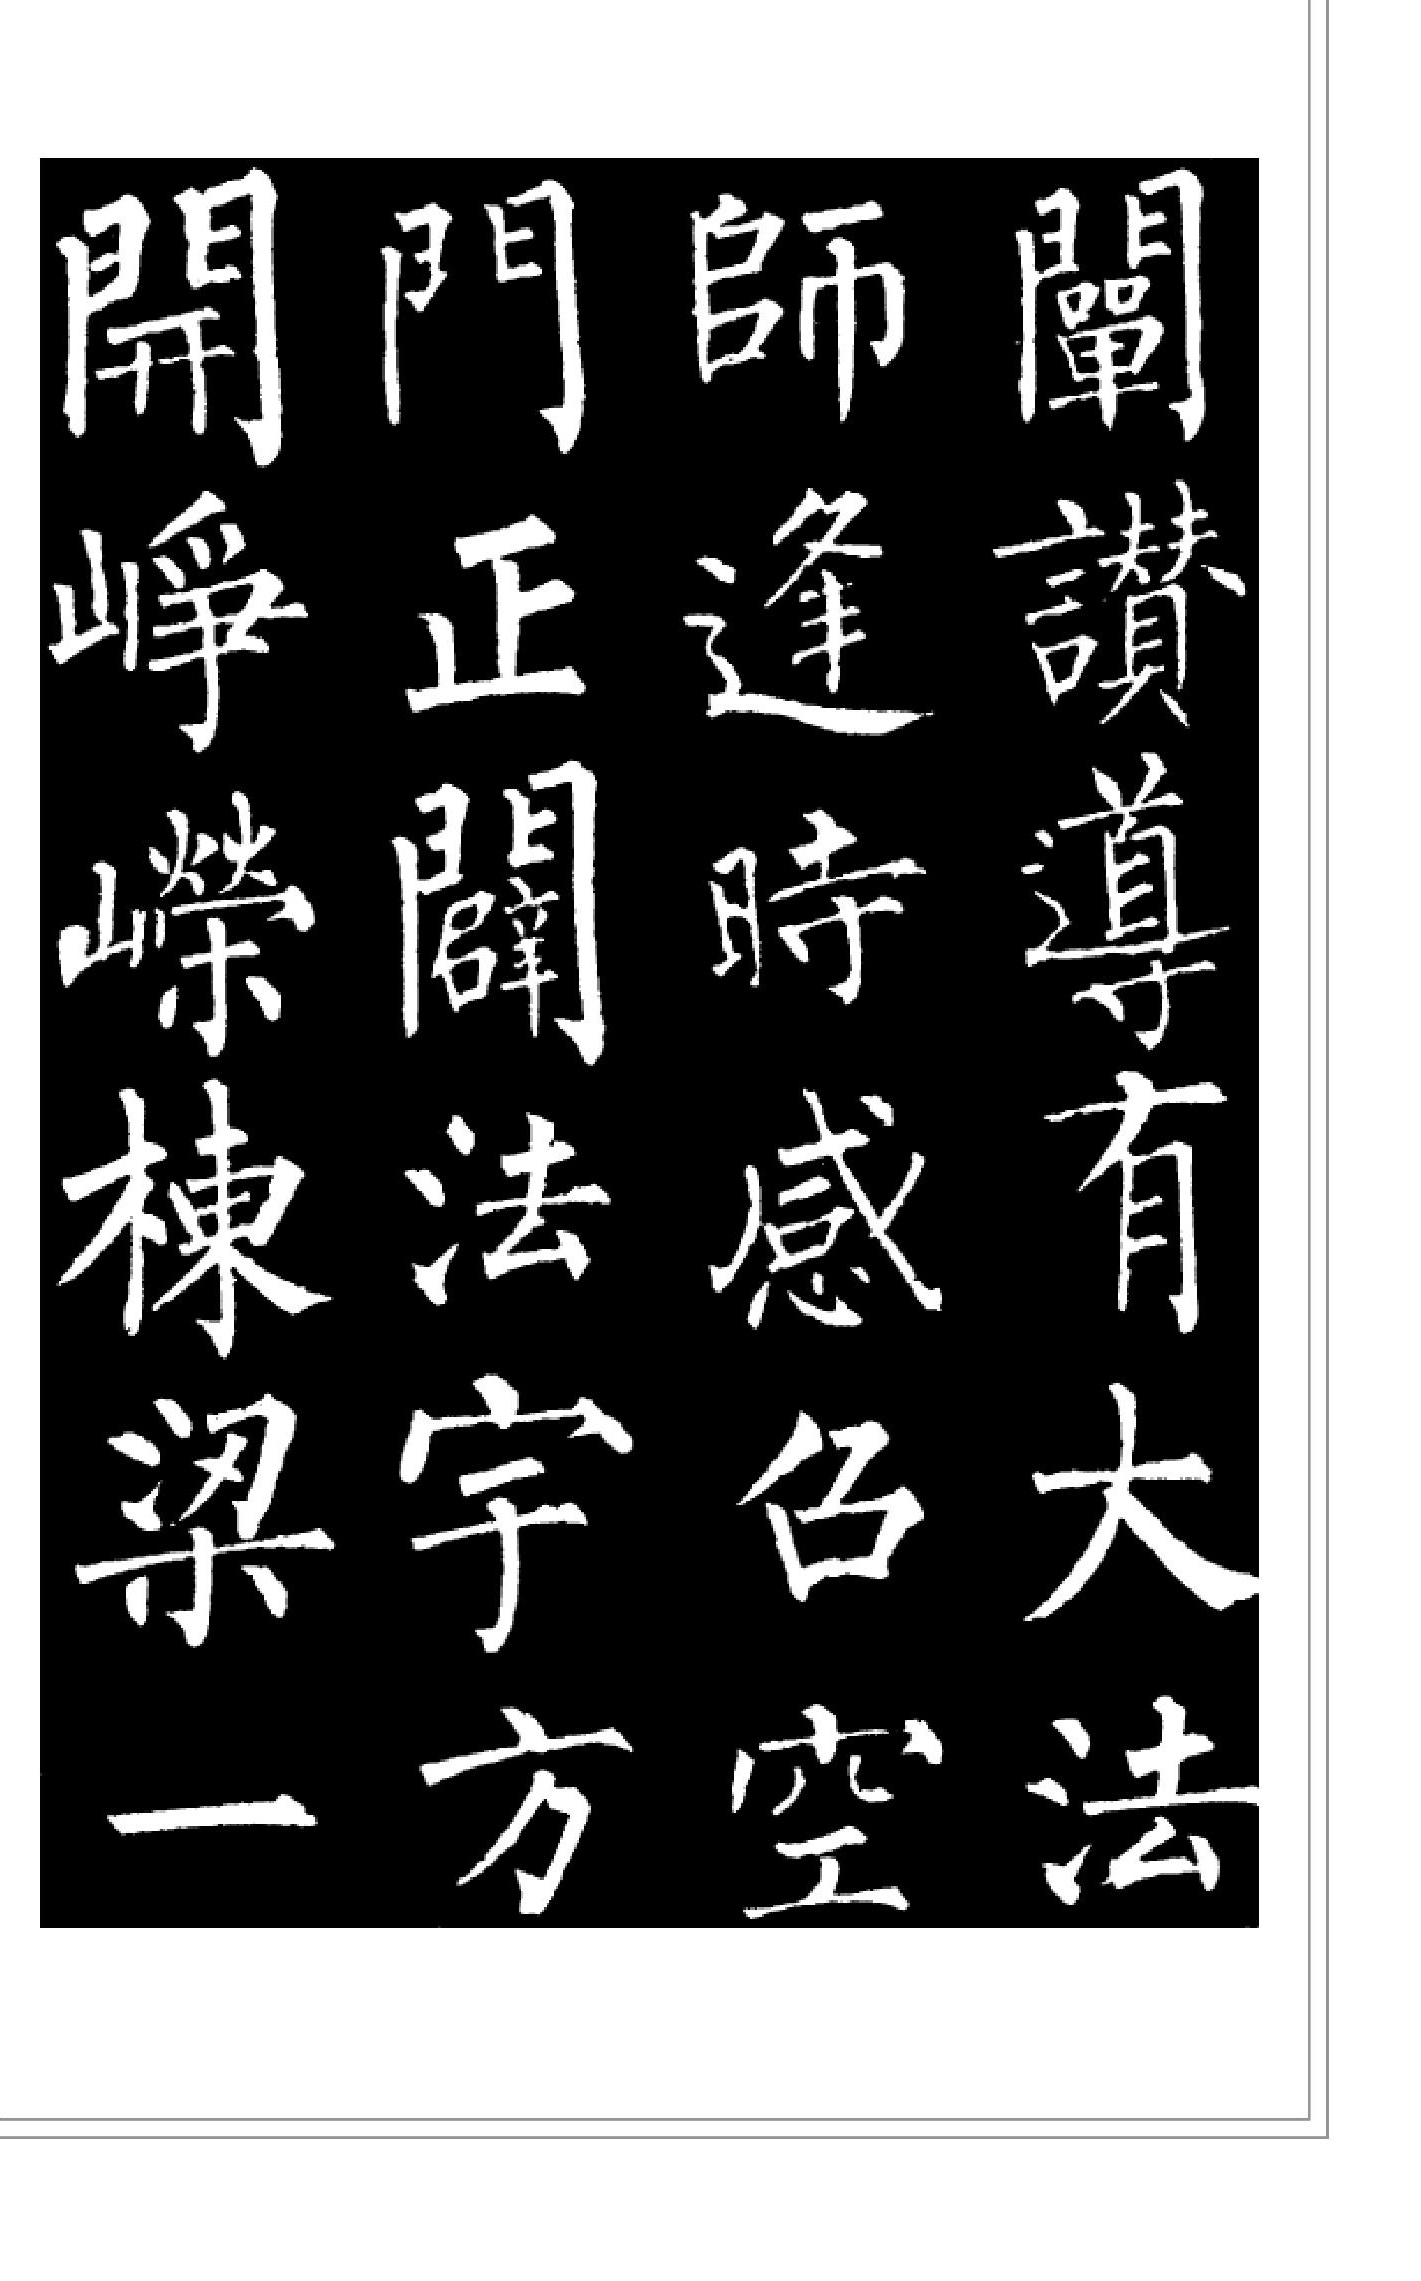 闡讃導有大法
師逢時感召空
門正闢法宇方
開崢嶸棟梁一